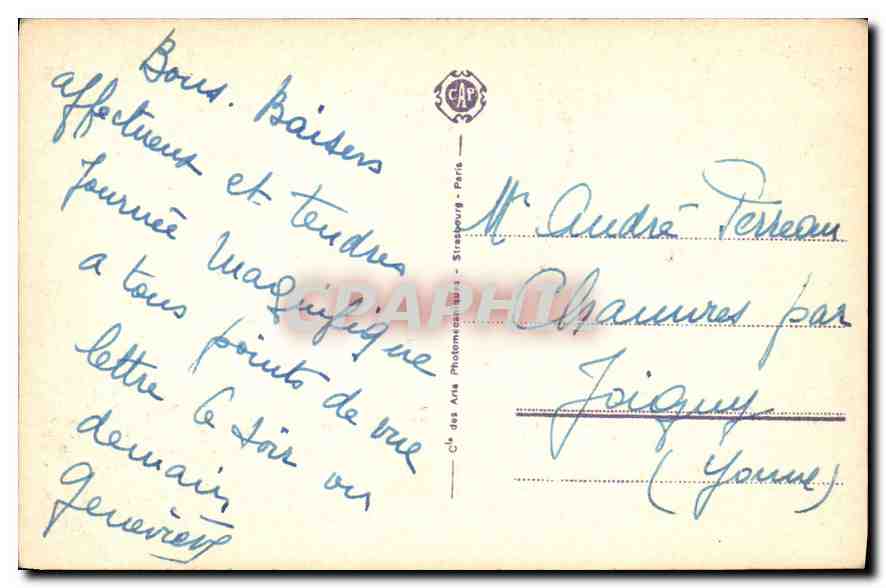 Bons. Baisers
affectueux et tendres
Journée Magnifique
a tous points de vue
lettre ce soir ou
demain
Geneviève
CAP
Cie des Arts Photomécaniques - Strasbourg - Paris
CPAPHIL
Mr André Perreau
Chamvres par
Joigny
(Yonne)